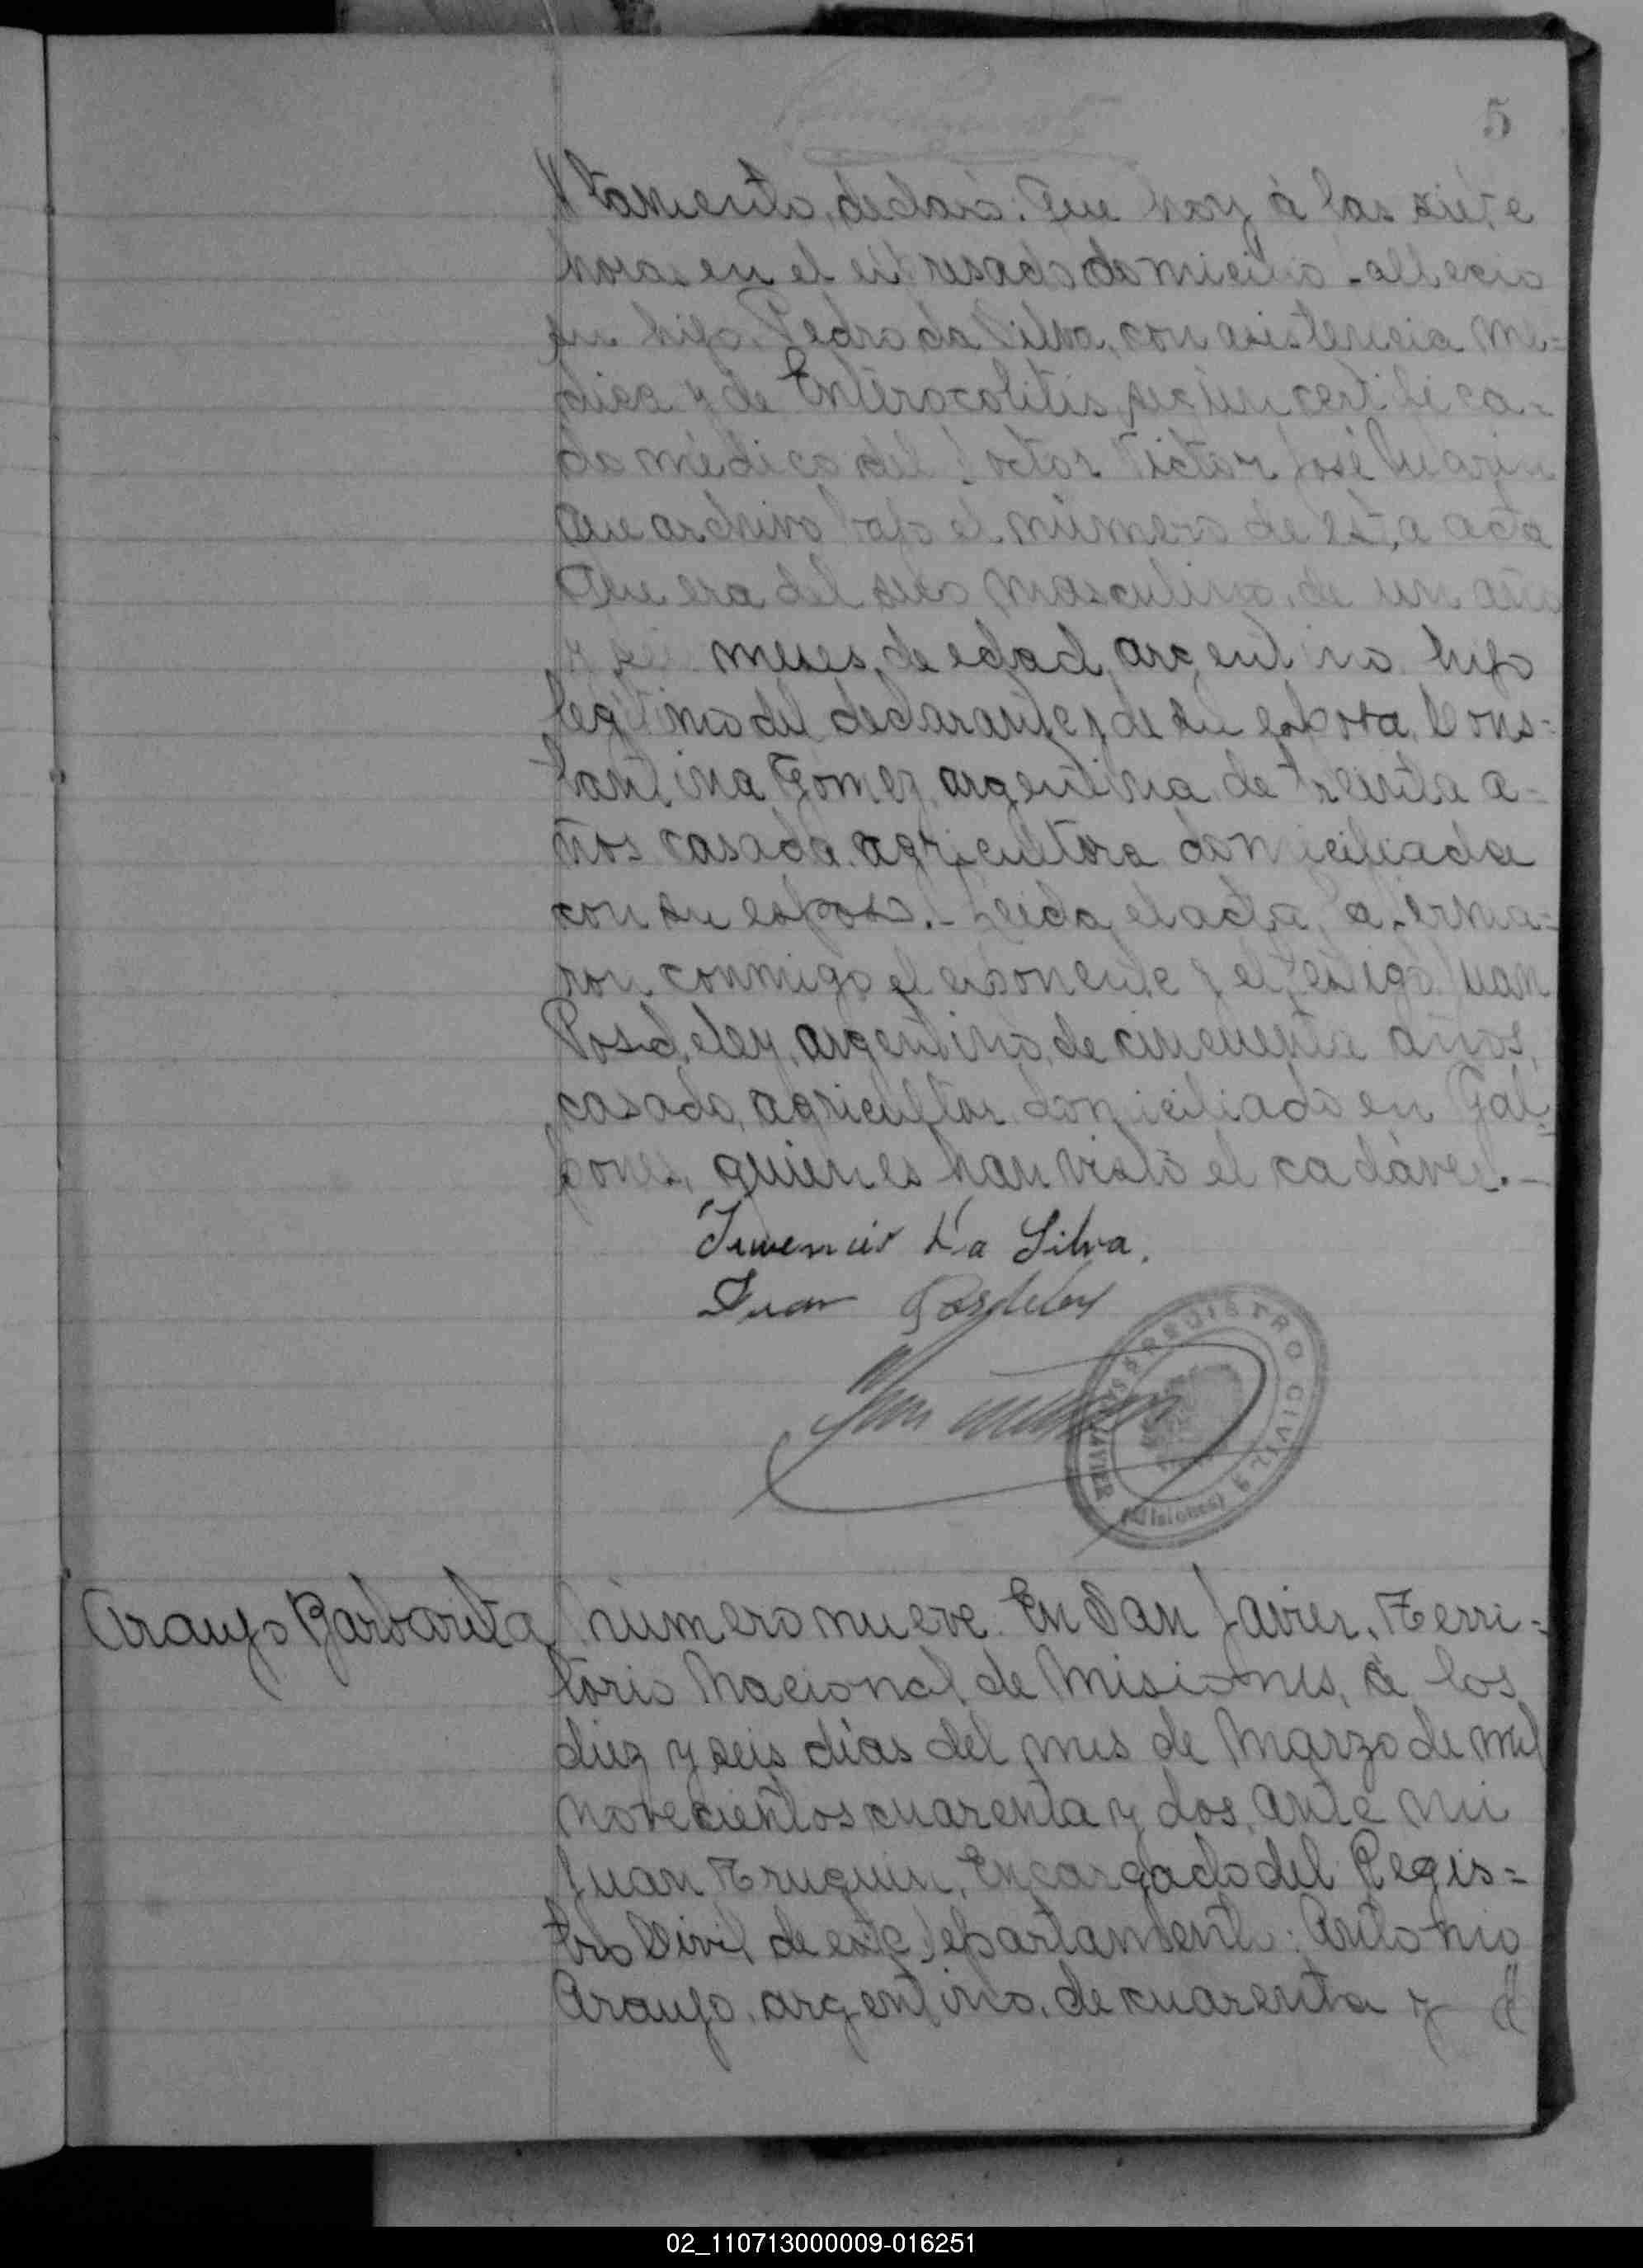 5
tamento, declaró: Que hoy á las siete
horas en el expresado domicilio falleció
su hijo, Pedro da Silva, con asistencia mé=
dica y de Enterocolitis, según certifica=
do médico del Doctor Victor José Marin
que archivo bajo el número de esta acta
Que era del sexo masculino, de un año
y meses, de edad, argentino hijo
legítimo del declarante y de su esposa, Cons=
tantina Gomez, argentina, de treinta a=
ños casada, agricultora domiciliada
con su esposo.- Leida el acta, la firma=
ron conmigo el exponente y el testigo Juan
Posdeley, argentino, de cincuenta años,
casado, agricultor domiciliado en Gal=
pones, quienes han visto el cadáver.-
Juvencio Da Silva.
Juan Posdeley
REGISTRO CIVIL
SAN JAVIER
(Misiones)
Araujo Barbarita
Número nueve. En San Javier, Terri=
torio Nacional de Misiones, á los
diez y seis días del mes de Marzo de mil
novecientos cuarenta y dos, ante mi
Juan Truquin, Encargado del Regis=
tro Civil de este Departamento: Antonio
Araujo, argentino, de cuarenta y
02_110713000009-016251